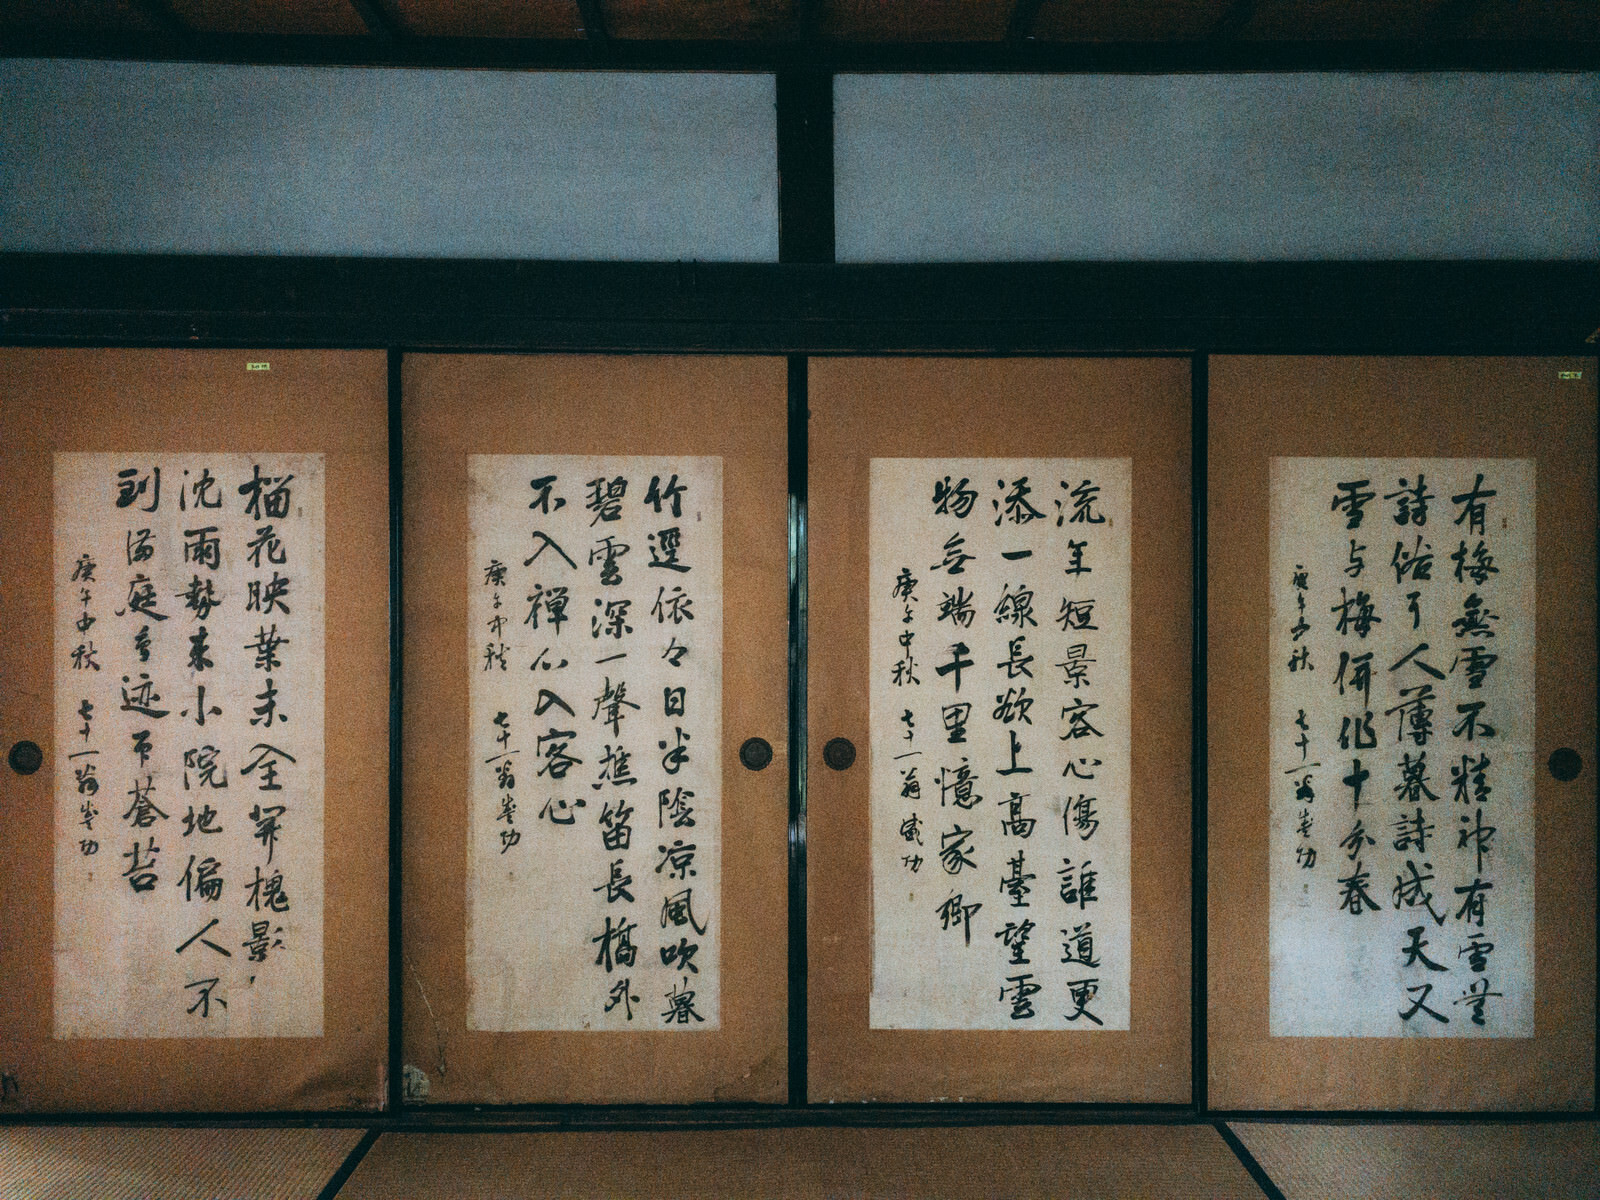 有梅無雪不精神有雪無
詩俗了人薄暮詩成天又
雪与梅併作十分春
庚午中秋 七十一翁
流年短景客心傷誰道更
添一線長欲上高臺望雲
物無端千里憶家郷
庚午中秋 七十一翁
竹逕依々日半陰凉風吹暮
碧雲深一聲樵笛長橋外
不入禅心入客心
庚午中秋 七十一翁
榴花映葉未全開槐影
沈雨勢来小院地偏人不
到満庭鳥迹印蒼苔
庚午中秋 七十一翁